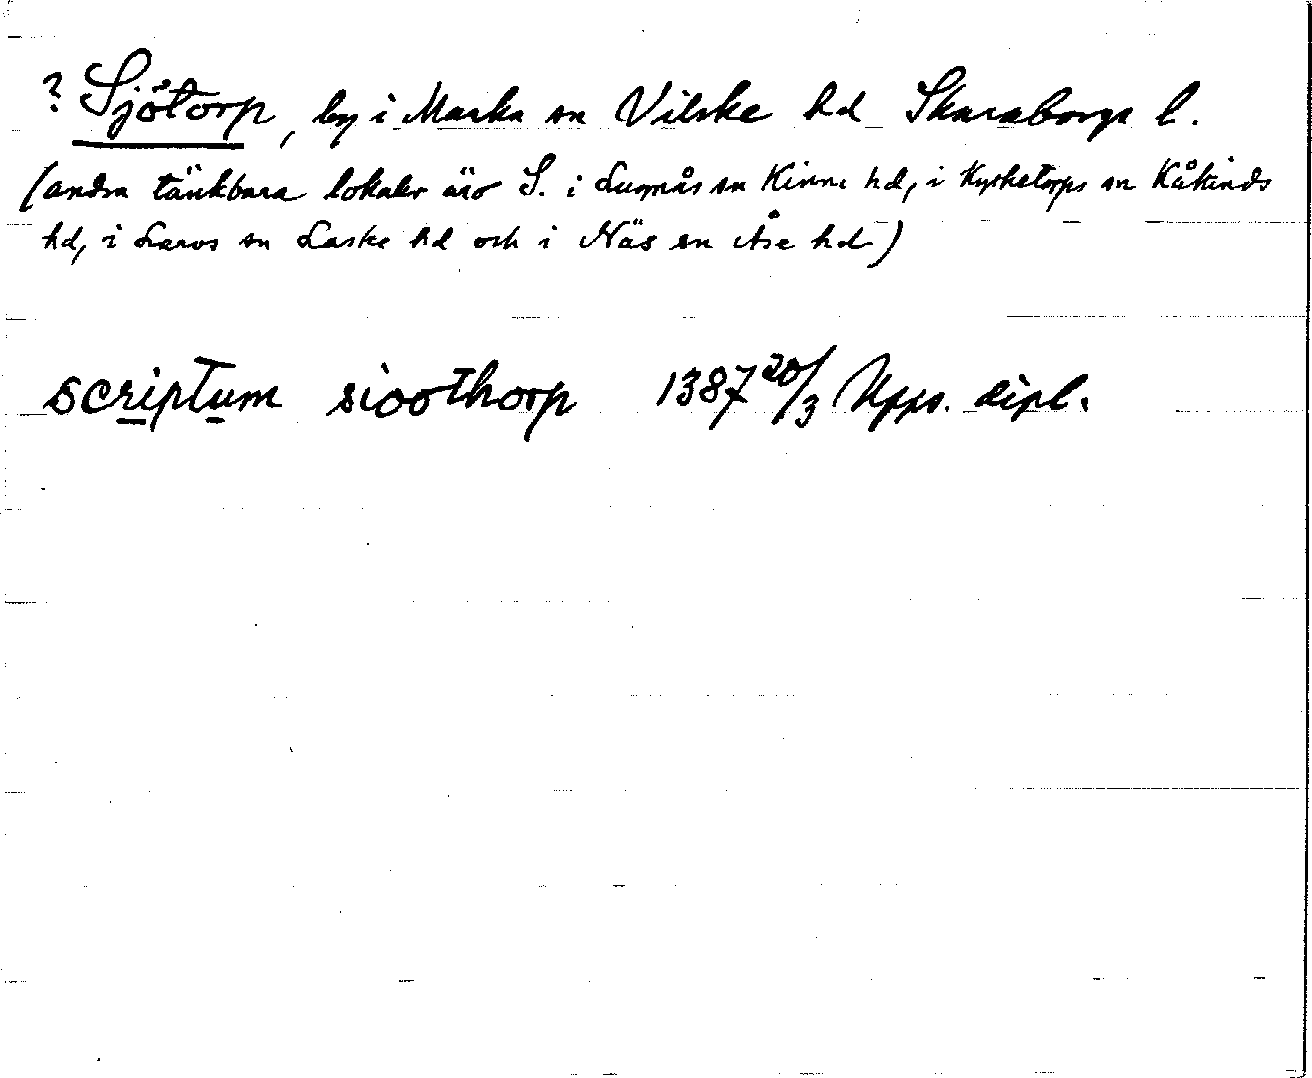 ? Sjötorp, by i Marka sn Vilske hd Skaraborgs l.
(andra tänkbara lokaler äro S. i Lugnås sn Kinne hd, i Kyrketorps sn Kåkinds
hd, i Larvs sn Laske hd och i Näs sn Åse hd)
scriptum sioothorp 1387 20/3 Upps. dipl.